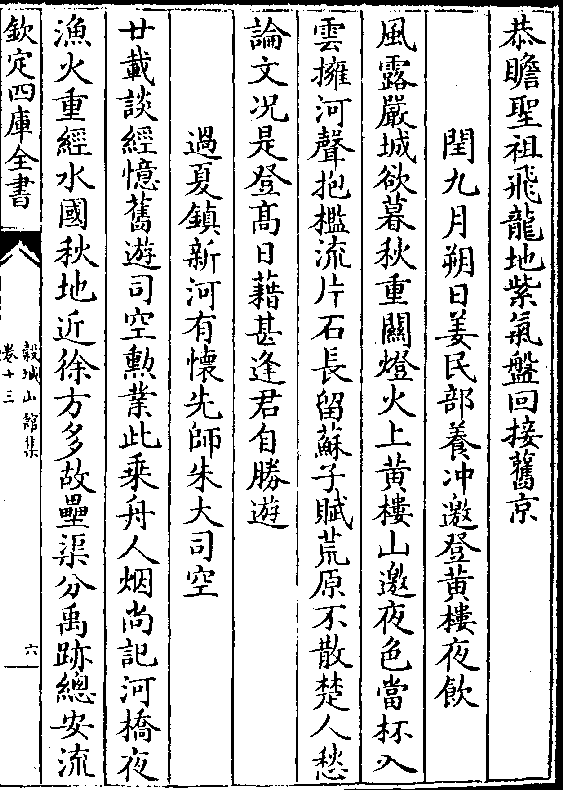 恭瞻聖祖飛龍地紫氣盤回接舊京
閏九月朔日姜民部養冲邀登黄樓夜飲
風露嚴城欲暮秋重闗燈火上黄樓山邀夜色當杯入
雲擁河聲抱檻流片石長留蘇子賦荒原不散楚人愁
論文况是登髙日藉甚逢君自勝遊
過夏鎮新河有懐先師朱大司空
廿載談經憶舊遊司空勲業此乗舟人烟尚記河橋夜
漁火重經水國秋地近徐方多故壘渠分禹跡總安流
欽定四庫全書
榖城山館集
卷十三
六